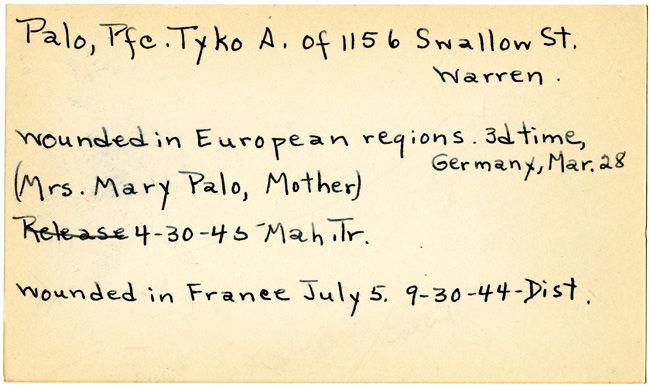 Palo, Pfc. Tyko A. of 1156 Swallow St.
Warren.
wounded in European regions. 3d time,
Germany, Mar. 28
(Mrs. Mary Palo, Mother)
Release 4-30-45 - Mah. Tr.
wounded in France July 5. 9-30-44-Dist.